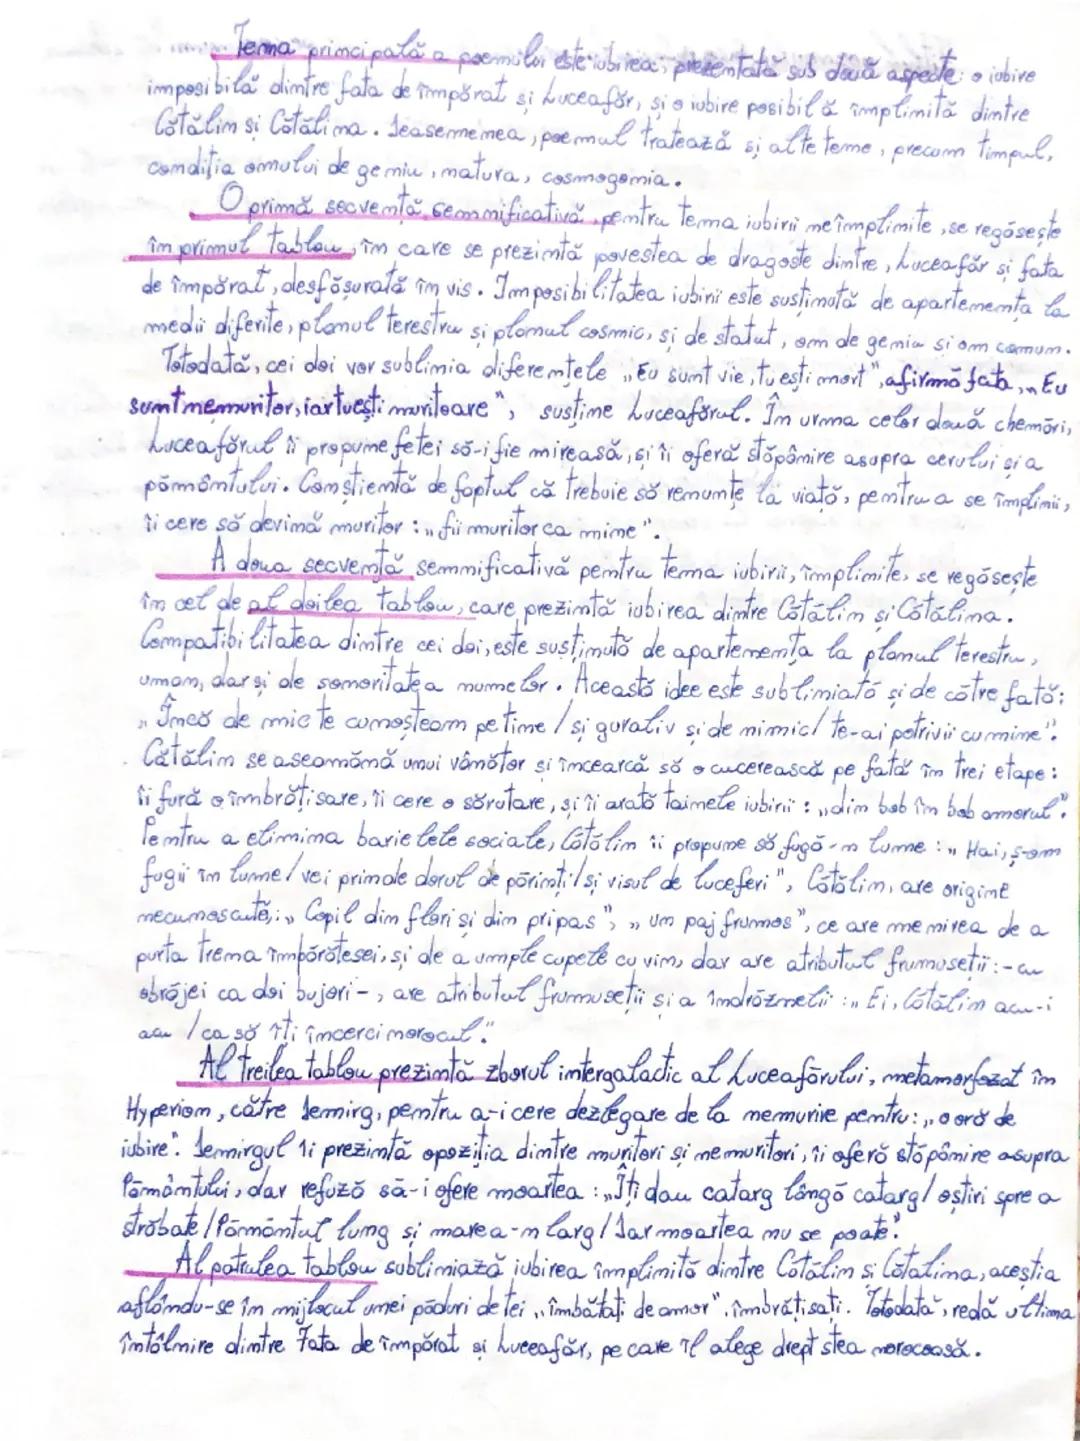 Tema principală a poemului este iubirea, prezentată sub două aspecte: o iubire
imposibilă dintre fata de împărat și Luceafăr, și o iubire posibilă împlinită dintre
Cătălin și Cătălina. Deasemenea, poemul tratează și alte teme, precum timpul,
condiția omului de geniu, natura, cosmogonia.
O primă secvență semnificativă, pentru tema iubirii neîmplinite, se regăsește
în primul tablou, în care se prezintă povestea de dragoste dintre, Luceafăr și fata
de împărat, desfășurată în vis. Imposibilitatea iubirii este susținută de apartenența la
medii diferite, planul terestru și planul cosmic, și de statut, om de geniu și om comun.
Totodată, cei doi vor sublinia diferențele „Eu sunt vie, tu ești mort", afirmă fata, „Eu
sunt nemuritor, iar tu ești muritoare", susține Luceafărul. În urma celor două chemări,
Luceafărul îi propune fetei să-i fie mireasă, și îi oferă stăpânire asupra cerului și a
pământului. Conștientă de faptul că trebuie să renunțe la viață, pentru a se împlinii,
îi cere să devină muritor: „fii muritor ca mine".
A doua secvență semnificativă pentru tema iubirii, împlinite, se regăsește
în cel de al doilea tablou, care prezintă iubirea dintre Cătălin și Cătălina.
Compatibilitatea dintre cei doi, este susținută de apartenența la planul terestru,
uman, dar și de sonoritatea numelor. Această idee este subliniată și de către fată:
„Încă de mic te cunoșteam pe tine / și guraliv și de nimic / te-ai potrivii cu mine".
Cătălin se aseamănă unui vânător și încearcă să o cucerească pe fată în trei etape:
îi fură o îmbrățișare, îi cere o sărutare, și îi arată tainele iubirii: „din bob în bob amorul".
Pentru a elimina barierele sociale, Cătălin îi propune să fugă-n lume: „Hai, ș-om
fugii în lume / vei pierde dorul de părinți / și visul de luceferi", Cătălin, are origine
necunoscute,: „Copil din flori și din pripas", „un paj frumos", ce are menirea de a
purta trena împărătesei, și de a umple cupele cu vin, dar are atributul frumuseții: -cu
obrăjei ca doi bujori-, are atributul frumuseții și a îndrăznelii: „Ei, Cătălin acu-i
acu / ca să îți încerci norocul."
Al treilea tablou prezintă zborul intergalactic al Luceafărului, metamorfozat în
Hyperion, către Demirg, pentru a-i cere dezlegare de la nemurire pentru: „o oră de
iubire". Demirgul îi prezintă opoziția dintre muritori și nemuritori, îi oferă stăpânire asupra
Pământului, dar refuză să-i ofere moartea: „Îți dau catarg lângă catarg / oștiri spre a
străbate / Pământul lung și marea-n larg / Dar moartea nu se poate."
Al patrulea tablou subliniază iubirea împlinită dintre Cătălin și Cătălina, aceștia
aflându-se în mijlocul unei păduri de tei „îmbătați de amor", îmbrățișați. Totodată, redă ultima
întâlnire dintre Fata de împărat și Luceafăr, pe care îl alege drept stea norocoasă.